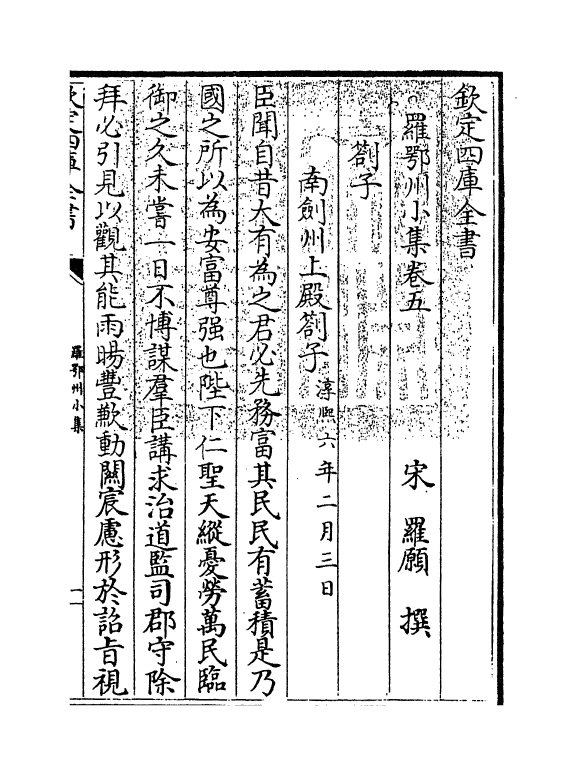 欽定四庫全書
羅鄂州小集卷五　宋　羅願　撰
劄子
南劍州上殿劄子淳熙六年二月三日
臣聞自昔大有為之君必先務富其民民有蓄積是乃
國之所以為安富尊强也陛下仁聖天縱憂勞萬民臨
御之久未嘗一日不博謀羣臣講求治道監司郡守除
拜必引見以觀其能雨暘豐歉動闗宸慮形於詔旨視
欽定四庫全書
羅鄂州小集